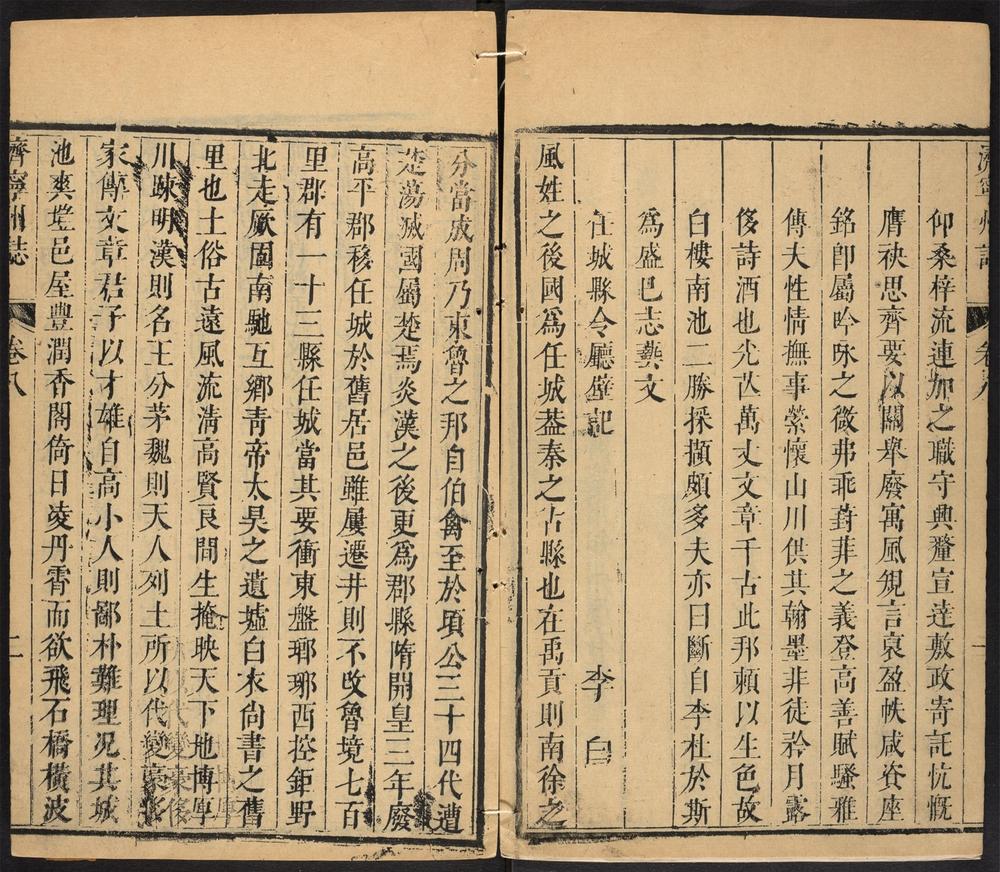 濟寧州誌
卷八
一
仰桑梓流連加之職守興釐宣達敷政寄託忼慨
膺袂思齊要以關舉廢寓風覬言裒盈帙咸資座
銘卽屬吟咏之微弗乖葑菲之義登高善賦騷雅
傳夫性情撫事縈懷山川供其翰墨非徒矜月露
侈詩酒也光𦦨萬丈文章千古此邦賴以生色故
白樓南池二勝採擷頗多夫亦曰斷自李杜於斯
爲盛巳志藝文
任城縣令廳壁記 李白
風姓之後國爲任城蓋秦之古縣也在禹貢則南徐之
分當成周乃東魯之邦自伯禽至於頃公三十四代遭
楚蕩滅國屬楚焉炎漢之後更爲郡縣隋開皇三年廢
高平郡移任城於舊居邑雖屢遷井則不改魯境七百
里郡有一十三縣任城當其要衝東盤瑯琊西控鉅野
北走厥國南馳互鄉青帝太昊之遺墟白衣尚書之舊
里也土俗古遠風流淸高賢良間生掩映天下地博厚
川疎明漢則名王分茅魏則天人列土所以代變豪侈
家傳文章君子以才雄自高小人則鄙朴難理况其城
池爽塏邑屋豐潤香閣倚日凌丹霄而欲飛石橋橫波
濟寧州誌
卷八
二